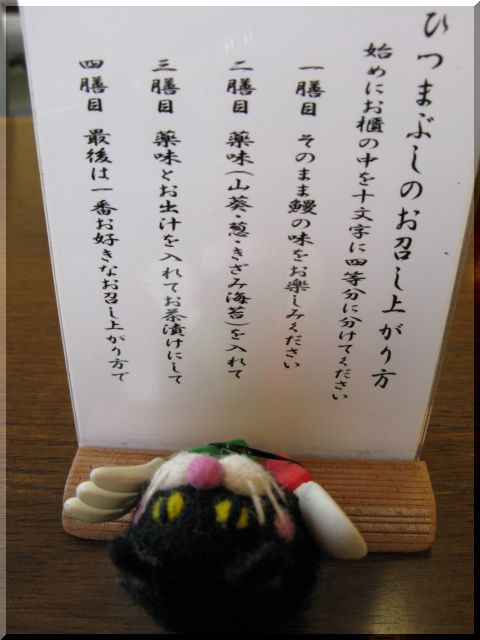 ひつまぶしのお召し上がり方
始めにお櫃の中を十文字に四等分に分けてください
一膳目 そのまま鰻の味をお楽しみください
二膳目 薬味(山葵・葱・きざみ海苔)を入れて
三膳目 薬味とお出汁を入れてお茶漬けにして
四膳目 最後は一番お好きなお召し上がり方で